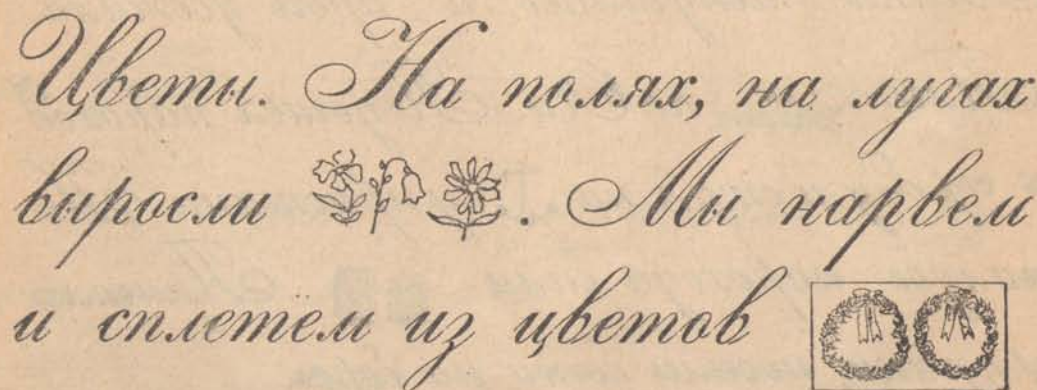 Цветы. На полях, на лугах
выросли . Мы нарвем
и сплетем из цветов